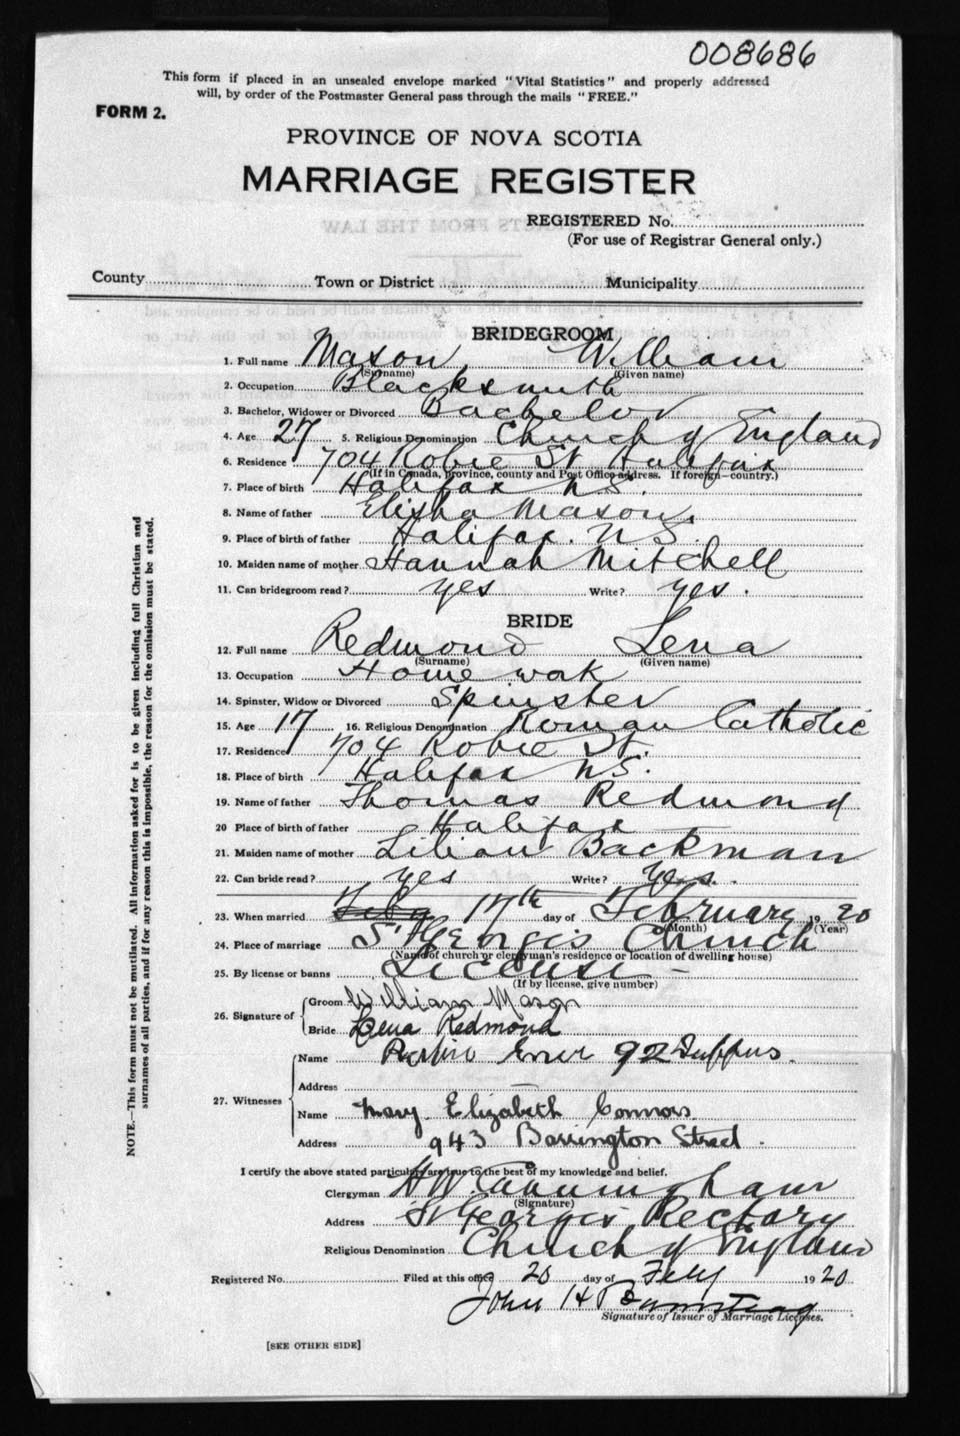 008686
This form if placed in an unsealed envelope marked "Vital Statistics" and properly addressed
will, by order of the Postmaster General pass through the mails "FREE."
FORM 2.
PROVINCE OF NOVA SCOTIA
MARRIAGE REGISTER
REGISTERED No.
(For use of Registrar General only.)
County Town or District Municipality
BRIDEGROOM
1. Full name Mason, William
(Surname) (Given name)
2. Occupation Blacksmith
3. Bachelor, Widower or Divorced Bachelor
4. Age 27 5. Religious Denomination Church of England
6. Residence 704 Robie St Halifax
(If in Canada, province, county and Post Office address. If foreign—country.)
7. Place of birth Halifax N.S.
8. Name of father Elisha Mason.
9. Place of birth of father Halifax. N.S.
10. Maiden name of mother Hannah Mitchell
11. Can bridegroom read? yes Write? yes.
BRIDE
12. Full name Redmond Lena
(Surname) (Given name)
13. Occupation Home work
14. Spinster, Widow or Divorced Spinster
15. Age 17 16. Religious Denomination Roman Catholic
17. Residence 704 Robie St.
18. Place of birth Halifax N.S.
19. Name of father Thomas Redmond
20 Place of birth of father Halifax
21. Maiden name of mother Lilian Backman
22. Can bride read? yes Write? yes.
23. When married 17th day of February 1920
(Month) (Year)
24. Place of marriage St George's Church
(Name of church or clergyman's residence or location of dwelling house)
25. By license or banns License -
(If by license, give number)
26. Signature of
Groom William Mason
Bride Lena Redmond
27. Witnesses
Name 92 Duffus.
Address
Name Mary Elizabeth Connors
Address 943 Barrington Street.
I certify the above stated particulars are true to the best of my knowledge and belief.
Clergyman H W Cunningham
(Signature)
Address St George's Rectory
Religious Denomination Church of England
Registered No. Filed at this office 20 day of Feby 1920
John H Barnstead
Signature of Issuer of Marriage Licenses.
[SEE OTHER SIDE]
NOTE.—This form must not be mutilated. All information asked for is to be given including full Christian and
surnames of all parties, and if for any reason this is impossible, the reason for the omission must be stated.